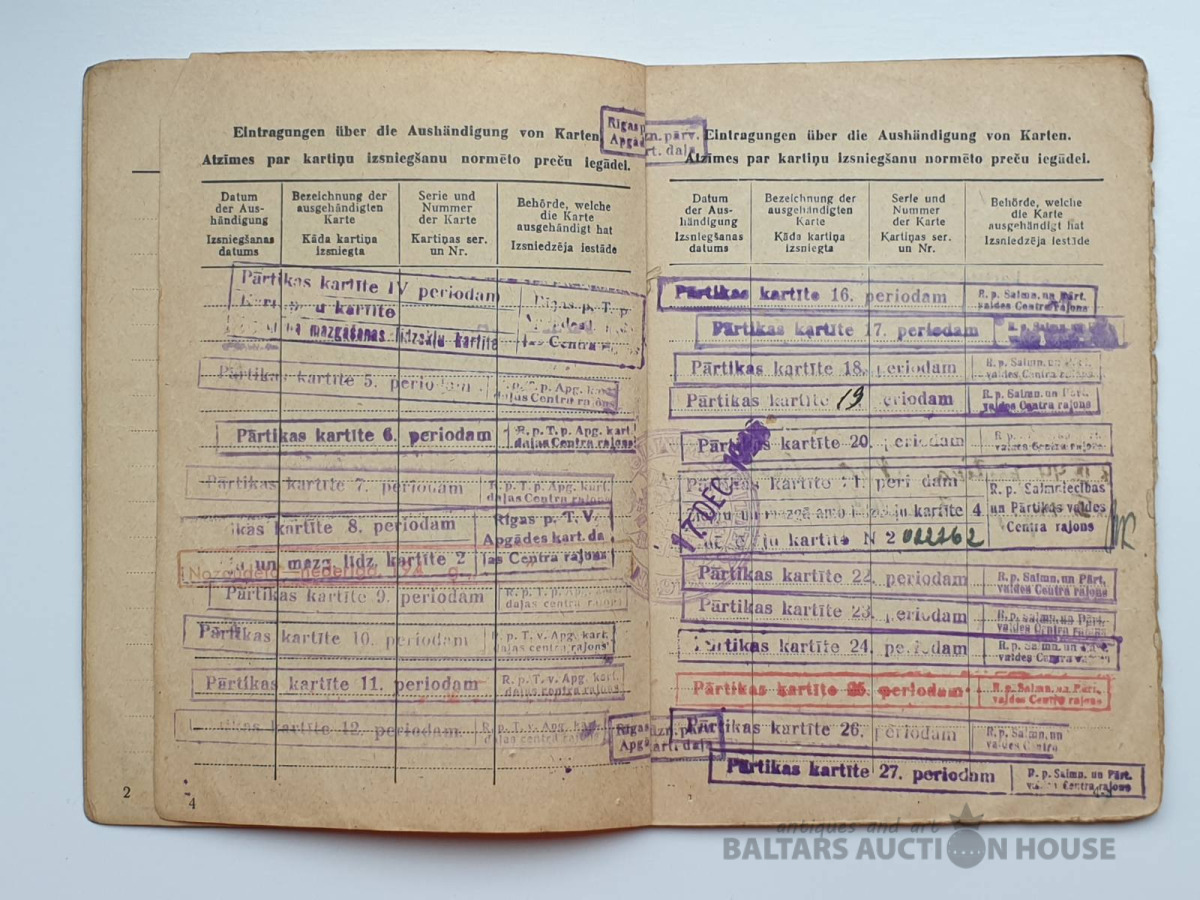 Eintragungen über die Aushändigung von Karten.
Atzīmes par kartiņu izsniegšanu normēto preču iegādei.
Datum der Aus-händigung
Izsniegšanas datums
Bezeichnung der ausgehändigten Karte
Kāda kartiņa izsniegta
Serie und Nummer der Karte
Kartiņas ser. un Nr.
Behörde, welche die Karte ausgehändigt hat
Izsniedzēja iestāde
Pārtikas kartīte IV periodam
kartīte
mazgāšanas līdzekļu kartīte
Pārtikas kartīte 5. periodam
R. p. T. p. Apg. kart. daļas Centra rajons
Pārtikas kartīte 6. periodam
R. p. T. p. Apg. kart. daļas Centra rajons
Pārtikas kartīte 7. periodam
R. p. T. p. Apg. kart. daļas Centra rajons
kartīte 8. periodam
un mazg. līdz. kartīte 2
Rīgas p. T. V. Apgādes kart. da
ļas Centra rajons
Pārtikas kartīte 9. periodam
R. p. T. v. Apg. kart. daļas centra rajons
Pārtikas kartīte 10. periodam
R. p. T. v. Apg. kart. daļas centra rajons
Pārtikas kartīte 11. periodam
R. p. T. v. Apg. kart. daļas centra rajons
kartīte 12. periodam
R. p. T. v. Apg. kart. daļas centra rajons
2
4
Rīgas
Apgā
pārv.
daļa
Eintragungen über die Aushändigung von Karten.
Atzīmes par kartiņu izsniegšanu normēto preču iegādei.
Datum der Aus-händigung
Izsniegšanas datums
Bezeichnung der ausgehändigten Karte
Kāda kartiņa izsniegta
Serie und Nummer der Karte
Kartiņas ser. un Nr.
Behörde, welche die Karte ausgehändigt hat
Izsniedzēja iestāde
Pārtikas kartīte 16. periodam
R. p. Saimn. un Pārt. valdes Centra rajons
Pārtikas kartīte 17. periodam
Pārtikas kartīte 18. periodam
R. p. Saimn. un Pārt. valdes Centra rajons
Pārtikas kartīte 19 periodam
R. p. Saimn. un Pārt. valdes Centra rajons
Pārtikas kartīte 20. periodam
17. DEC.
Pārtikas kartīte 21. periodam
kartīte 4
N 2 022262
R. p. Saimniecības un Pārtikas valdes Centra rajons
Pārtikas kartīte 22. periodam
R. p. Saimn. un Pārt. valdes Centra rajons
Pārtikas kartīte 23. periodam
R. p. Saimn. un Pārt. valdes Centra rajons
Pārtikas kartīte 24. periodam
R. p. Saimn. un Pārt. valdes Centra rajons
Pārtikas kartīte 25. periodam
R. p. Saimn. un Pārt. valdes Centra rajons
Pārtikas kartīte 26. periodam
R. p. Saimn. un
valdes Centra
Pārtikas kartīte 27. periodam
R. p. Saimn. un Pārt. valdes Centra rajons
Rīgas
Apgā
daļa
antiques and art
BALTARS AUCTION HOUSE